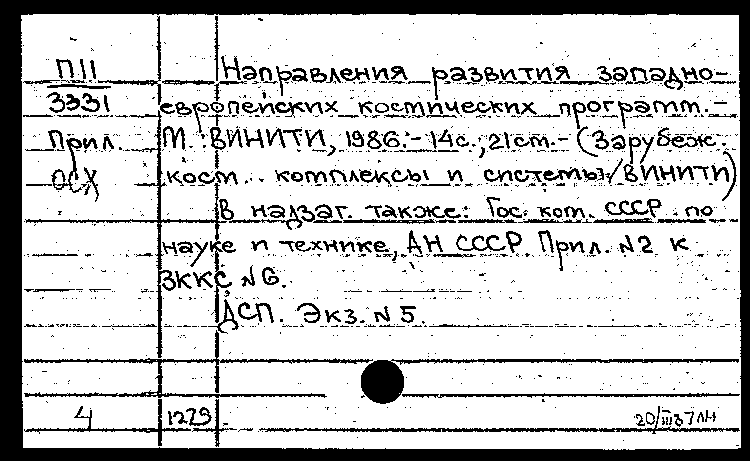 П11 Направления развития западно-
3331 европейских космических программ.-
Прил. М.:ВИНИТИ, 1986.-14с.;21см.-(Зарубеж.
ОСХ косм.. комплексы и системы/ВИНИТИ)
В надзаг. также: Гос. ком. СССР по
науке и технике, АН СССР. Прил. N2 к
ЗККС N6.
ДСП. Экз. N5.
4 1279 20/III87